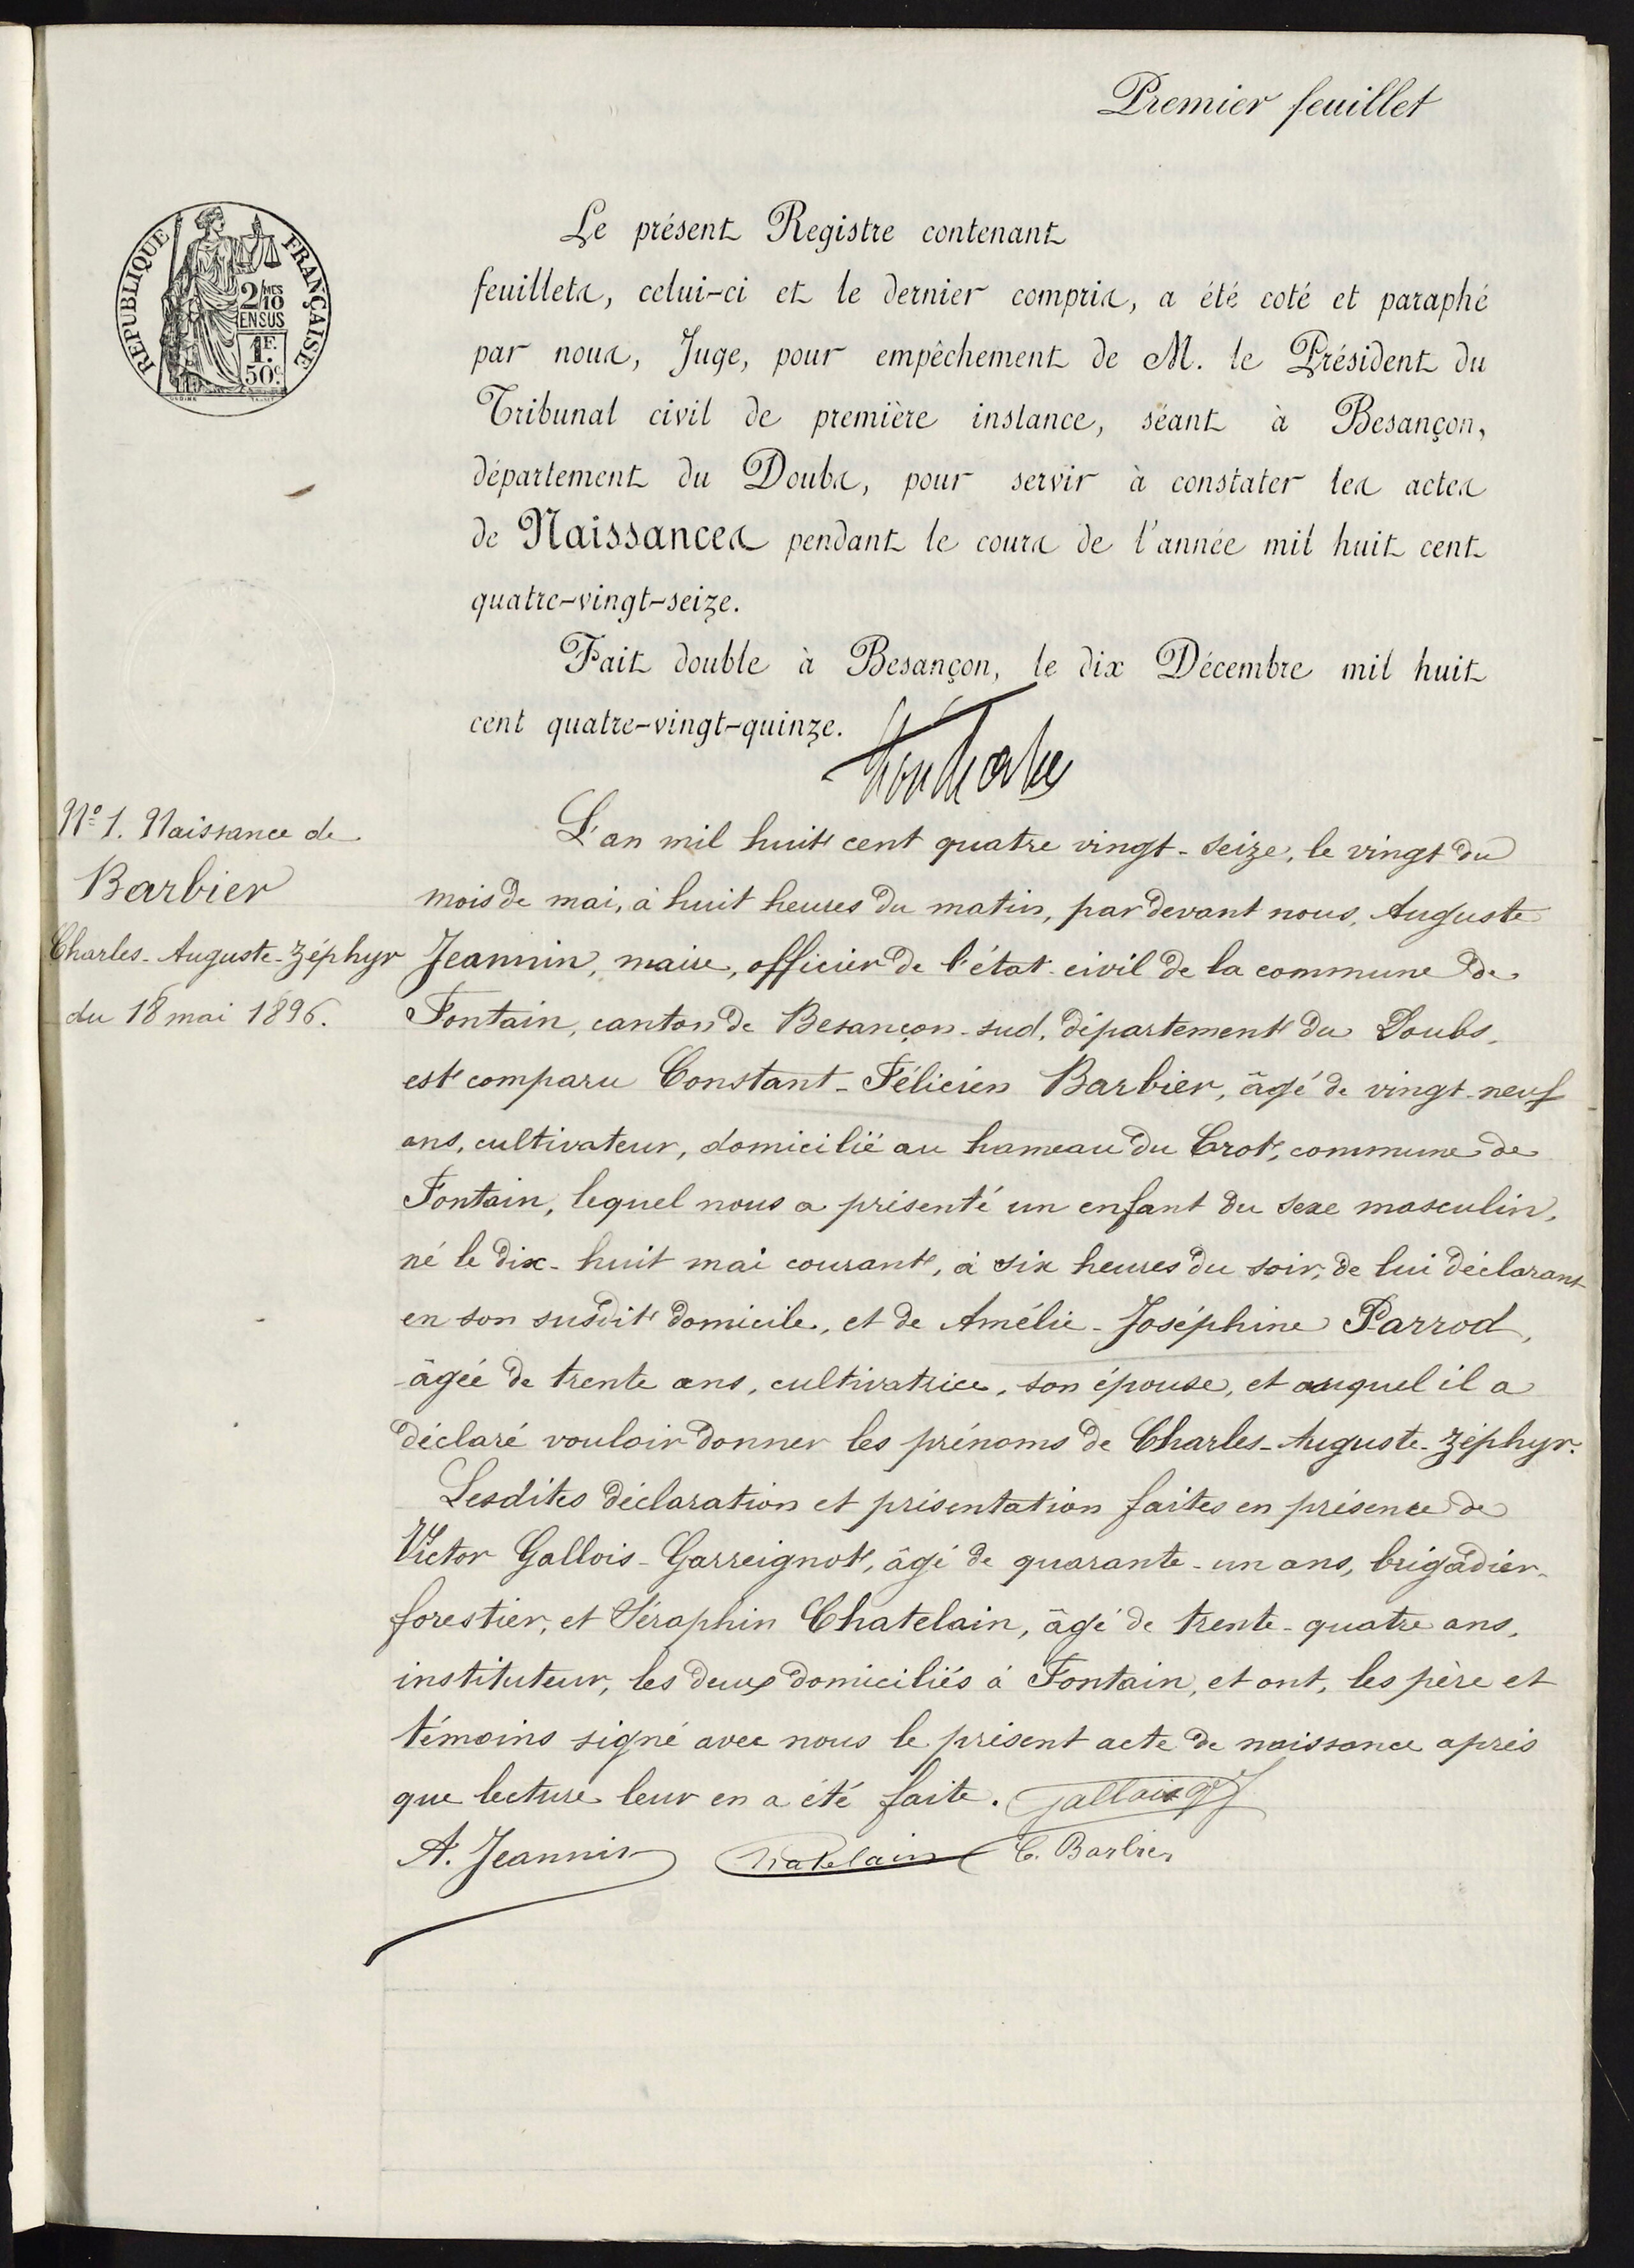 Premier feuillet
RÉPUBLIQUE FRANÇAISE
2/10mes
EN SUS
1F.
50c.
Le présent Registre contenant
feuillets, celui-ci et le dernier compris, a été coté et paraphé
par nous, Juge, pour empêchement de M. le Président du
Tribunal civil de première instance, séant à Besançon,
département du Doubs, pour servir à constater les actes
de Naissances pendant le cours de l'année mil huit cent
quatre-vingt-seize.
Fait double à Besançon, le dix Décembre mil huit
cent quatre-vingt-quinze.
N° 1. Naissance de
Barbier
Charles-Auguste-Zéphyr
du 18 mai 1896.
L'an mil huit cent quatre vingt-seize, le vingt du
mois de mai, à huit heures du matin, par devant nous, Auguste
Jeannin, maire, officier de l'état-civil de la commune de
Fontain, canton de Besançon-sud, département du Doubs,
est comparu Constant-Félicien Barbier, âgé de vingt-neuf
ans, cultivateur, domicilié au hameau du Crot, commune de
Fontain, lequel nous a présenté un enfant du sexe masculin,
né le dix-huit mai courant, à six heures du soir, de lui déclarant
en son susdit domicile, et de Amélie-Joséphine Parrod,
âgée de trente ans, cultivatrice, son épouse, et auquel il a
déclaré vouloir donner les prénoms de Charles-Auguste-Zéphyr.
Lesdites déclaration et présentation faites en présence de
Victor Gallois-Garreignot, âgé de quarante-un ans, brigadier-
forestier, et Séraphin Chatelain, âgé de trente-quatre ans,
instituteur, les deux domiciliés à Fontain, et ont, les père et
témoins signé avec nous le présent acte de naissance après
que lecture leur en a été faite. Gallois
A. Jeannin Chatelain C. Barbier